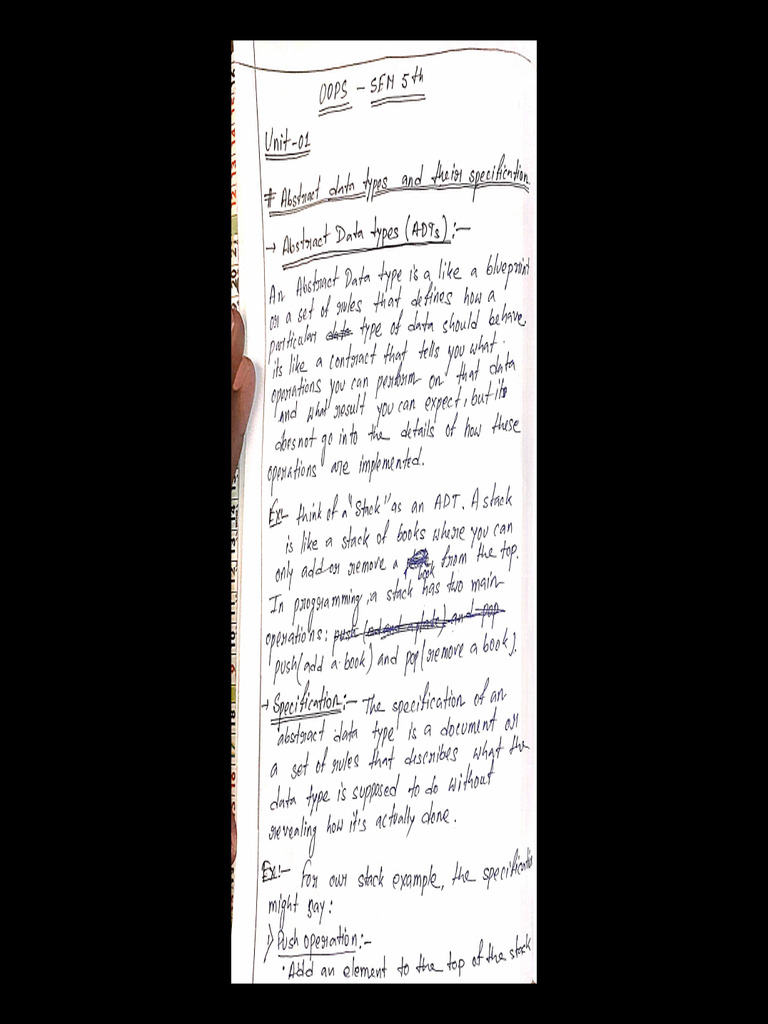 OOPS - SEM 5th
Unit-01
# Abstract data types and their specification
→ Abstract Data types (ADTs) :-
An Abstract Data type is a like a blueprint
or a set of rules that defines how a
particular data type of data should behave
its like a contract that tells you what
operations you can perform on that data
and what result you can expect, but it
does not go into the details of how these
operations are implemented.
Ex:- think of a "Stack" as an ADT. A stack
is like a stack of books where you can
only add or remove a book from the top.
In programming, a stack has two main
operations: push (add a plate) and pop
push(add a book) and pop(remove a book).
→ Specification :- The specification of an
abstract data type is a document or
a set of rules that describes what the
data type is supposed to do without
revealing how it's actually done.
Ex:- for our stack example, the specification
might say:
1) Push operation:-
• Add an element to the top of the stack